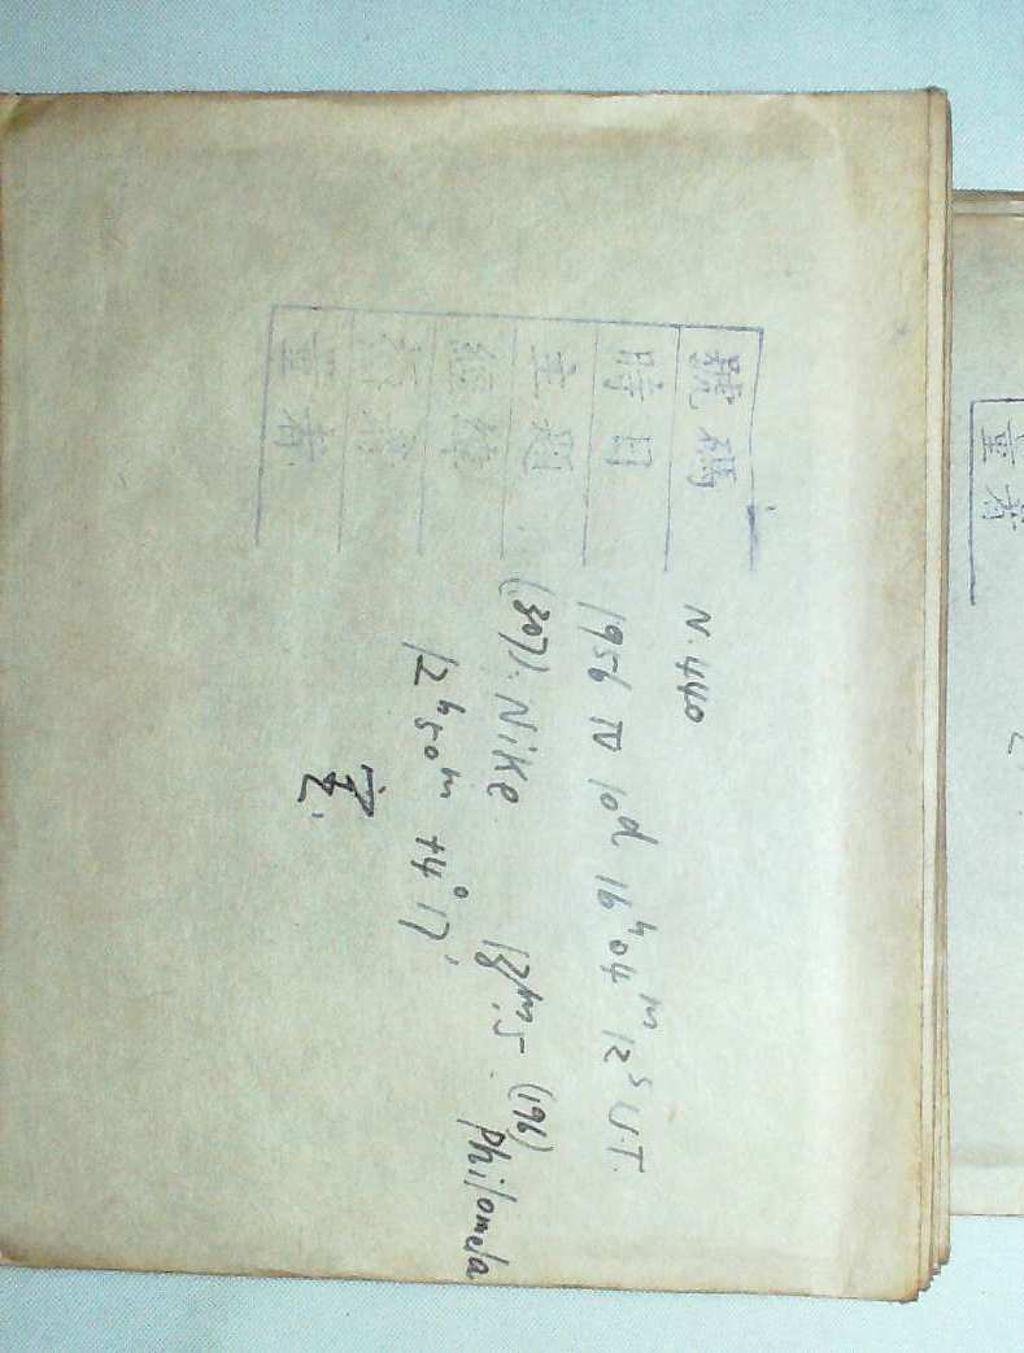 號碼 N. 440
時日 1956 IV 10d 16h04m12s U.T.
主題 (307). Nike 13m.5 (196) Philomela
經緯 12h50m +4°17′
天象
重者
重者